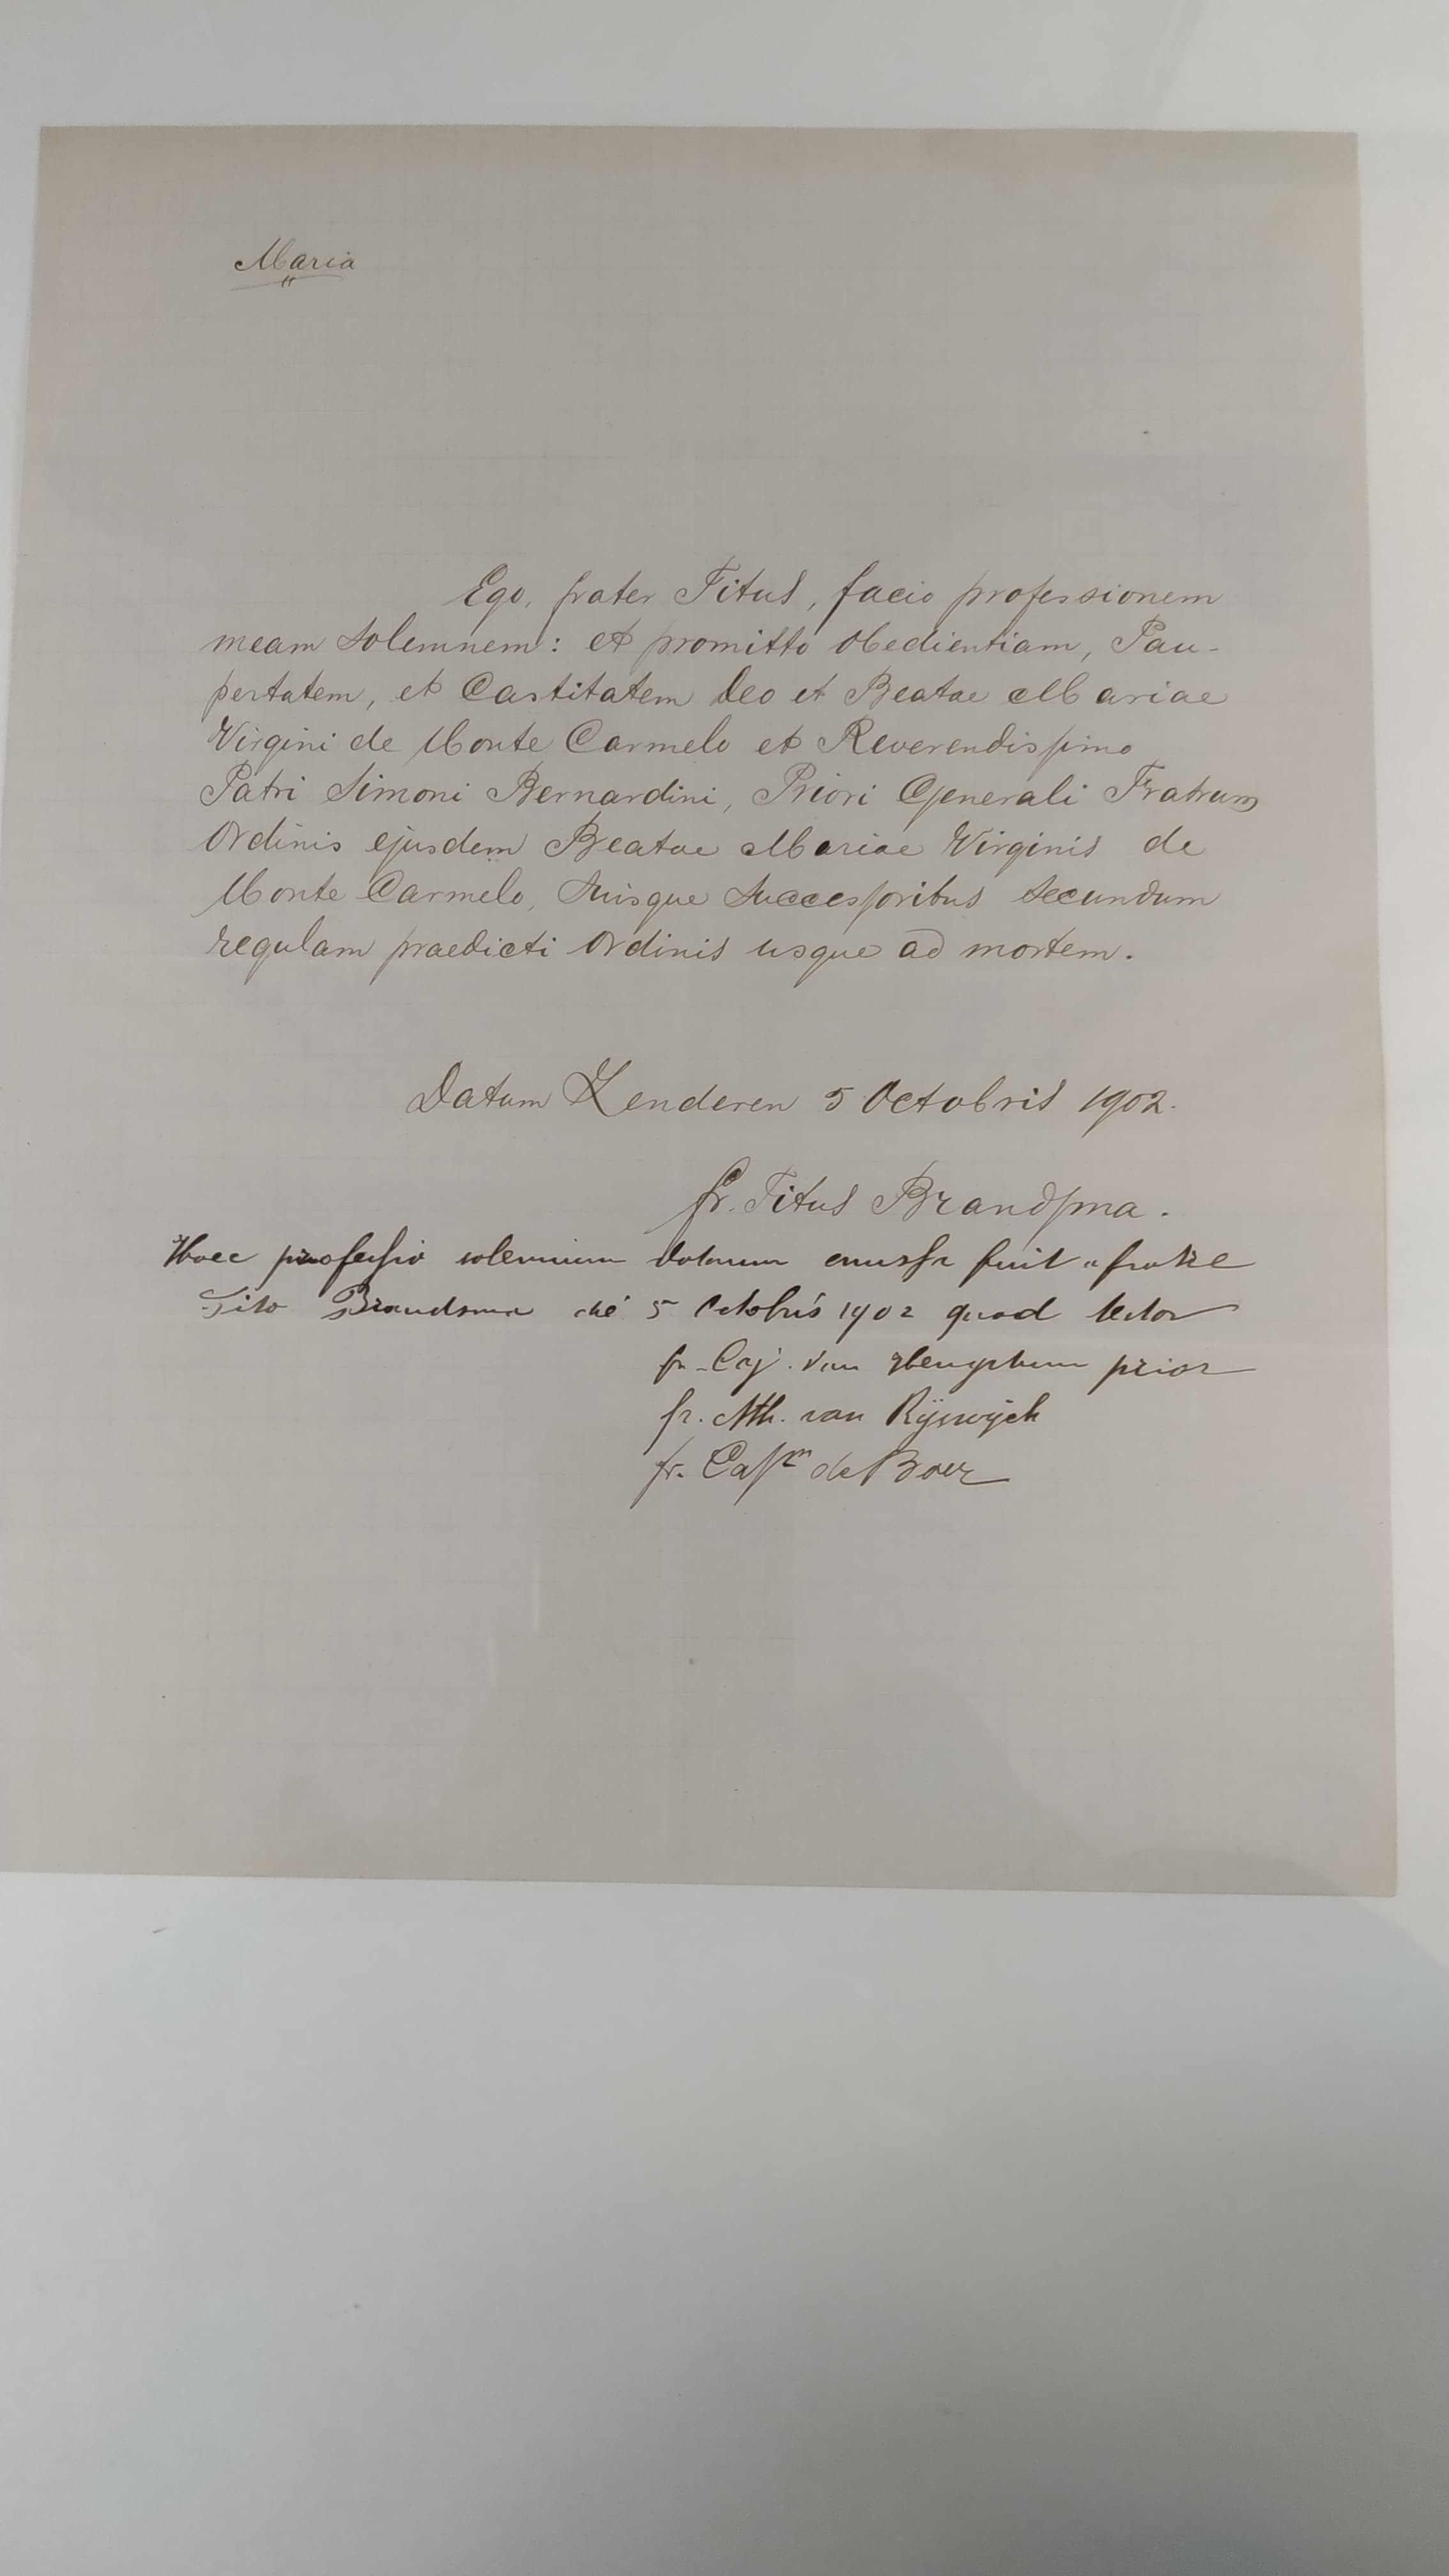 Maria
Ego, frater Titus, facio professionem
meam solemnem: et promitto obedientiam, Pau-
pertatem, et Castitatem Deo et Beatae Mariae
Virgini de Monte Carmelo et Reverendissimo
Patri Simoni Bernardini, Priori Generali Fratrum
Ordinis ejusdem Beatae Mariae Virginis de
Monte Carmelo, suisque successoribus secundum
regulam praedicti Ordinis usque ad mortem.
Datum Zenderen 5 Octobris 1902.
fr. Titus Brandsma.
Haec professio solemnium votorum emissa fuit a fratre
Tito Brandsma die 5 Octobris 1902 quod testor
fr. Cyr. van prior
fr. Ath. van Rijswijck
fr. de Boer